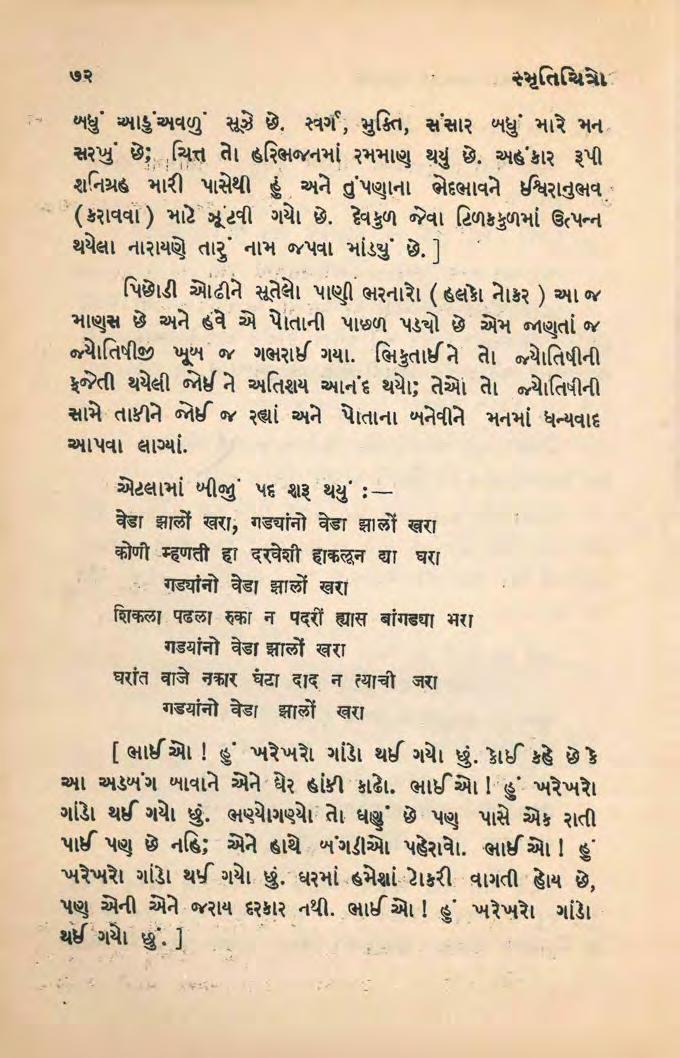 ૭૨
સ્મૃતિચિત્રો
બધું આડુંઅવળું સૂઝે છે. સ્વર્ગ, મુક્તિ, સંસાર બધું મારે મન
સરખું છે; ચિત્ત તો હરિભજનમાં રમમાણ થયું છે. અહંકાર રૂપી
શનિગ્રહ મારી પાસેથી હું અને તુંપણાના ભેદભાવને ઈશ્વિરાનુભવ
(કરાવવા) માટે ઝૂંટવી ગયો છે. દેવકુળ જેવા ટિળકકુળમાં ઉત્પન્ન
થયેલા નારાયણે તારું નામ જપવા માંડયું છે. ]
પિછોડી ઓઢીને સૂતેલો પાણી ભરનારો ( હલકો નોકર ) આ જ
માણસ છે અને હવે એ પોતાની પાછળ પડચો છે એમ જાણતાં જ
જ્યોતિષીજી ખૂબ જ ગભરાઈ ગયા. ભિકુતાઈને તો જ્યોતિષીની
ફજેતી થયેલી જોઈને અતિશય આનંદ થયો; તેઓ તો જ્યોતિષીની
સામે તાકીને જોઈ જ રહ્યાં અને પોતાના બનેવીને મનમાં ધન્યવાદ
આપવા લાગ્યાં.
એટલામાં બીજું પદ શરૂ થયું :—
वेडा झालों खरा, गडयांनो वेडा झालों खरा
कोणी म्हणती हा दरवेशी हाकलून द्या घरा
गडयांनो वेडा झालों खरा
शिकला पढला रुका न पदरीं ह्यास बांगडया भरा
गडयांनो वेडा झालों खरा
घरांत वाजे नकार घंटा दाद न त्याची जरा
गडयांनो वेडा झालों खरा
[ ભાઈઓ ! હું ખરેખરો ગાંડો થઈ ગયો છું. કોઈ કહે છે કે
આ અડબંગ બાવાને એને ઘેર હાંકી કાઢો. ભાઈઓ ! હું ખરેખરો
ગાંડો થઈ ગયો છું. ભણ્યોગણ્યો તો ઘણું છે પણ પાસે એક રાતી
પાઈ પણ છે નહિ; એને હાથે બંગડીઓ પહેરાવો. ભાઈઓ ! હું
ખરેખરો ગાંડો થઈ ગયો છું. ઘરમાં હમેશાં ટોકરી વાગતી હોય છે,
પણ એની એને જરાય દરકાર નથી. ભાઈઓ ! હું ખરેખરો ગાંડો
થઈ ગયો છું. ]